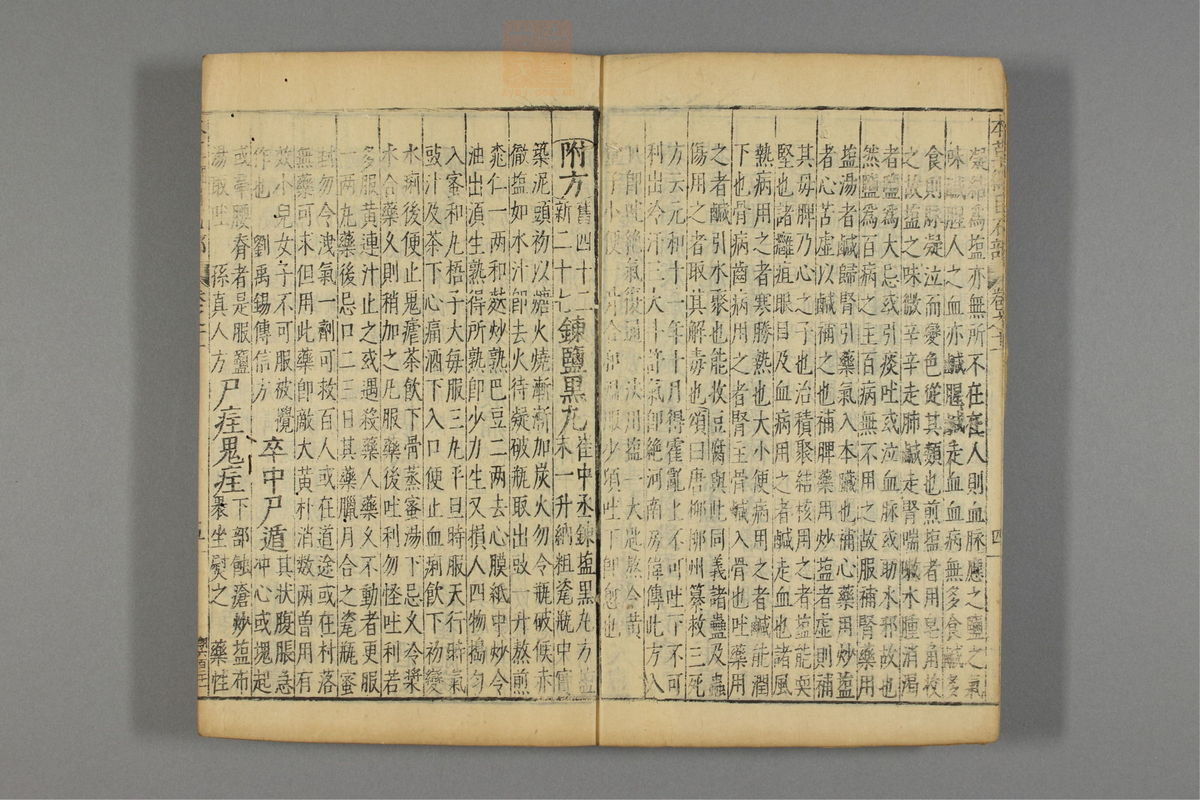 凝結爲塩亦無所不在在人則血脉應之鹽之氣
味鹹腥人之血亦鹹腥鹹走血血病無多食鹹多
食則脉凝泣而變色從其類也煎塩者用皂角收
之故塩之味微辛辛走肺鹹走腎喘嗽水腫消渴
者鹽爲大忌或引痰吐或泣血脉或助水邪故也
然鹽爲百病之主百病無不用之故服補腎藥用
塩湯者鹹歸腎引藥氣入本臟也補心藥用炒塩
者心苦虛以鹹補之也補脾藥用炒塩者虛則補
其母脾乃心之子也治積聚結核用之者塩能耎
堅也諸癰疽眼目及血病用之者鹹走血也諸風
熱病用之者寒勝熱也大小便病用之者鹹能潤
下也骨病齒病用之者腎主骨鹹入骨也吐藥用
之者鹹引水聚也能收豆腐與此同義諸蠱及蟲
傷用之者取其解毒也頌曰唐柳柳州纂救三死
方云元和十一年十月得霍亂上不可吐下不可
利出冷汗三大斗許氣卽絶河南房偉傳此方入
口卽吐絶氣復通 法用塩一大匙熬令黄
童子小便 升合和温服少頃吐下卽愈也
附方舊四十二新二十七錬鹽黑丸崔中丞錬塩黑丸方塩末一升納粗瓷瓶中實
築泥頭初以煻火燒漸漸加炭火勿令瓶破候赤
徹塩如水汁卽去火待凝破瓶取出豉一升熬煎
桃仁一兩和麩炒熟巴豆二兩去心膜紙中炒令
油出湏生熟得所熟卽少力生又損人四物搗匀
入蜜和丸梧子大每服三丸平旦時服天行時氣
豉汁及茶下心痛酒下入口便止血痢飲下初變
水痢後便止鬼瘧茶飲下骨蒸蜜湯下忌又冷漿
水合藥久則稍加之凡服藥後吐利勿怪吐利若
多服黄連汁止之或遇殺藥人藥又不動者更服
一兩丸藥後忌口二三日其藥臘月合之瓷瓶蜜
封勿令洩氣一劑可救百人或在道途或在村落
無藥可求但用此藥卽敵大黄朴消數兩曽用有
效小兒女子不可服被攪作也 劉禹錫傳信方 卒中尸遁其狀腹脹急冲心或塊起
或牽腰脊者是服鹽湯取吐 孫真人方 尸疰鬼疰下部蝕瘡炒塩布裹坐熨之 藥性